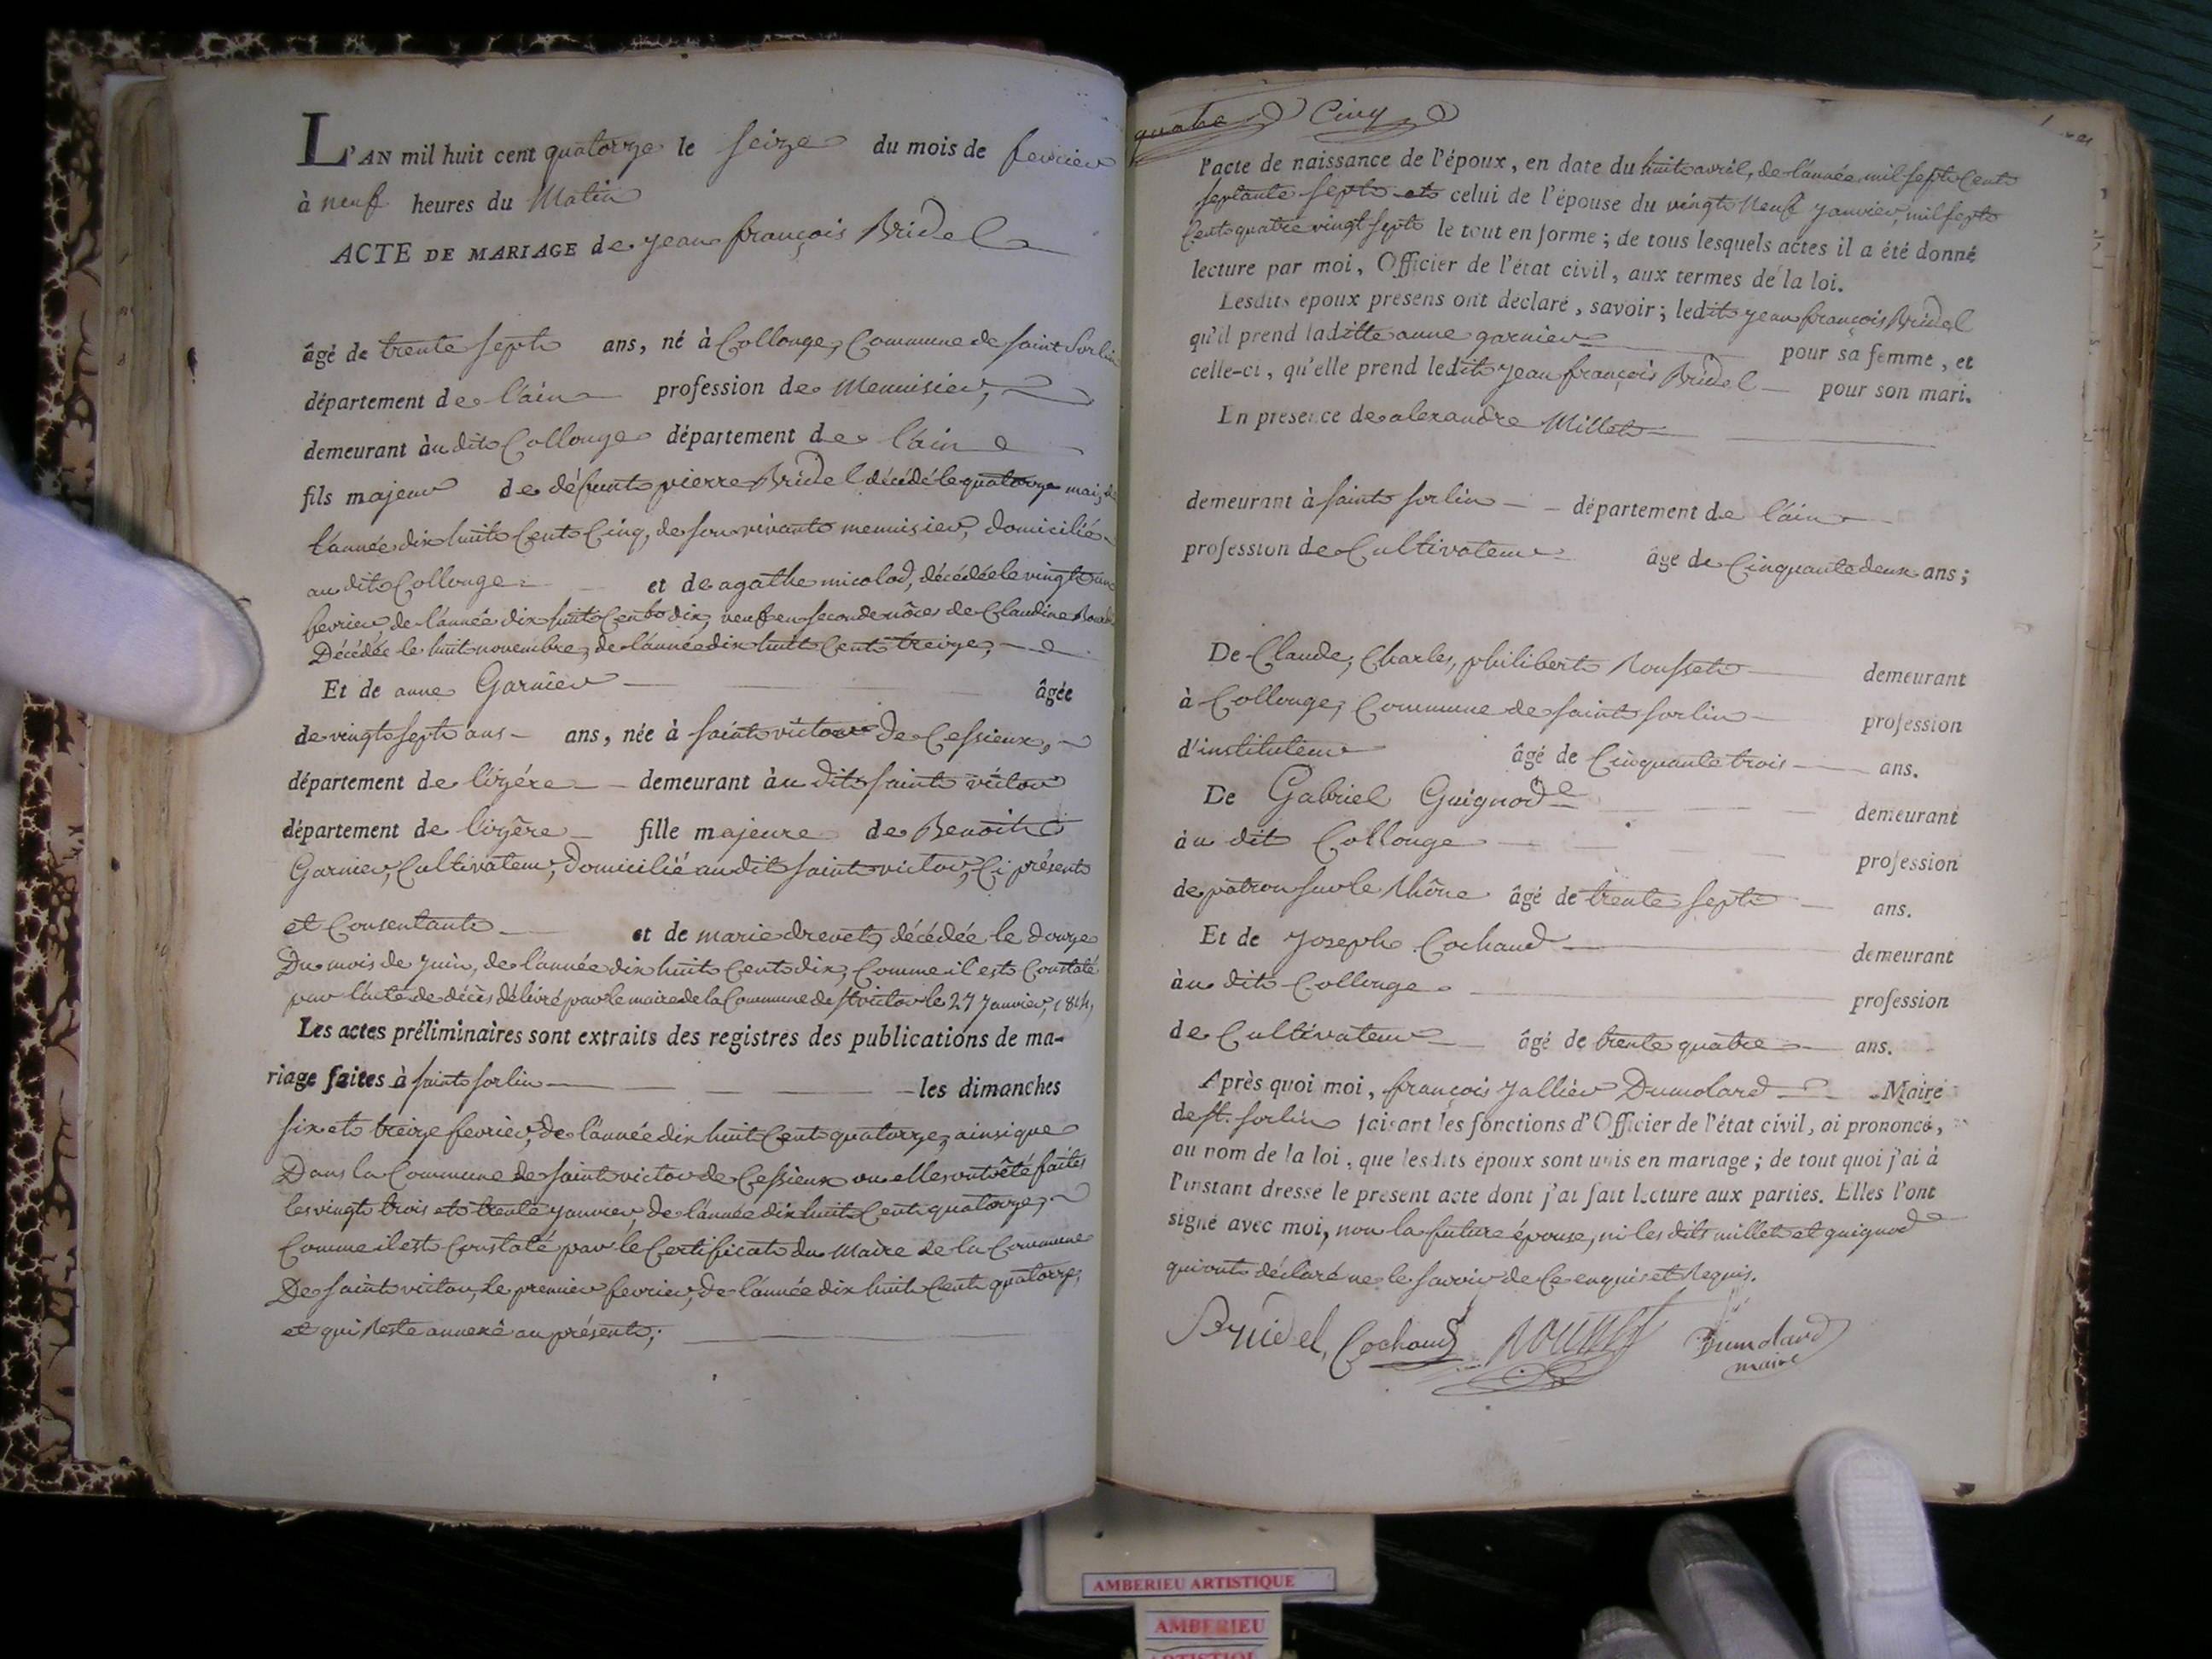 L'AN mil huit cent quatorze le seize du mois de fevrier
à neuf heures du Matin
ACTE DE MARIAGE de jean françois Bridel
âgé de trente sept ans, né à Collonge, Commune de saint Sorlin
département de l'ain profession de Menuisier,
demeurant àu dit Collonge département de l'ain
fils majeur de défunt pierre Bridel décédé le quatorze mai, de
l'année dix huit Cent Cinq, de son vivant menuisier, domicilié
au dit Collonge et de agathe micolod, décédée le vingt un
fevrier de l'année dix huit Cent dix, veuf en seconde nôces de Claudine
Décédée le huit novembre, de l'année dix huit Cent treize,
Et de anne Garnier âgée
de vingt sept ans ans, née à saint victor de Cessieux,
département de l'izére demeurant àu dit saint victor
département de l'izère fille majeure de Benoit
Garnier, Cultivateur, domicilié au dit saint victor, Ci présent
et Consentant et de marie drevet, décédée le douze
Du mois de juin, de l'année dix huit Cent dix, Comme il est Constaté
par l'acte de décès délivré par le maire de la Commune de st victor le 27 janvier, 1814,
Les actes préliminaires sont extraits des registres des publications de ma-
riage faites à saint sorlin les dimanches
six et treize fevrier, de l'année dix huit Cent quatorze, ainsi que
Dans la Commune de saint victor de Cessieux ou elles ont été faites
les vingt trois et trente janvier, de l'année dix huit Cent quatorze,
Comme il est Constaté par le Certificat du Maire de la Commune
De saint victor, le premier fevrier, de l'année dix huit Cent quatorze,
et qui Reste annexé au présent;
quatre Cinq
l'acte de naissance de l'époux, en date du huit avril, de l'année mil sept Cent
septante sept et celui de l'épouse du vingt Neuf janvier, mil sept
Cent quatre vingt sept le tout en forme; de tous lesquels actes il a été donné
lecture par moi, Officier de l'état civil, aux termes de la loi.
Lesdits époux présens ont déclaré, savoir; ledit jean françois Bridel
qu'il prend laditte anne garnier pour sa femme, et
celle-ci, qu'elle prend ledit jean françois Bridel pour son mari.
En présence de alexandre Millet
demeurant à saint sorlin département de l'ain
profession de Cultivateur âgé de Cinquante deux ans;
De Claude, Charles, philibert Rousset demeurant
à Collonge, Commune de saint sorlin profession
d'instituteur âgé de Cinquante trois ans.
De Gabriel Guignod demeurant
àu dit Collonge profession
de patron sur le Rhône âgé de trente sept ans.
Et de Joseph Cochaud demeurant
àu dit Collonge profession
de Cultivateur âgé de trente quatre ans.
Après quoi moi, françois jallier Dumolard Maire
de st. sorlin faisant les fonctions d'Officier de l'état civil, ai prononcé,
au nom de la loi, que lesdits époux sont unis en mariage; de tout quoi j'ai à
l'instant dressé le présent acte dont j'ai fait lecture aux parties. Elles l'ont
signé avec moi, non la future épouse, ni les dits millet et guignod
qui ont déclaré ne le savoir de Ce enquis et Requis.
Bridel, Cochaud Rousset Dumolard
maire
AMBERIEU ARTISTIQUE
AMBERIEU
ARTISTIQUE